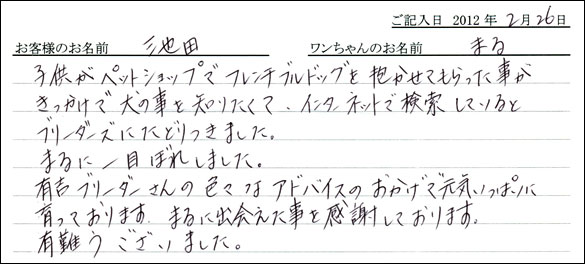 ご記入日 2012年 2月26日
お客様のお名前 池田 ワンちゃんのお名前 まる
子供がペットショップでフレンチブルドッグを抱かせてもらった事が
きっかけで犬の事を知りたくて、インターネットで検索していると
ブリーダーズにたどりつきました。
まるに一目ぼれしました。
有吉ブリーダーさんの色々なアドバイスのおかげで元気いっぱいに
育っております。まるに出会えた事を感謝しております。
有難うございました。